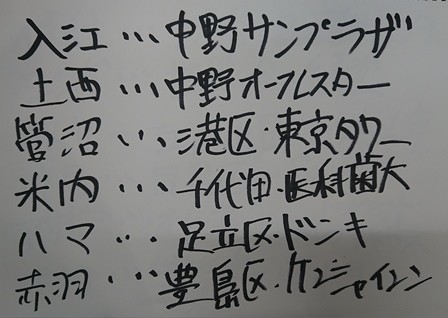 入江…中野サンプラザ
土西…中野オールスター
菅沼…港区・東京タワー
米内…千代田・医科歯大
ハマ…足立区・ドンキ
赤羽…豊島区・